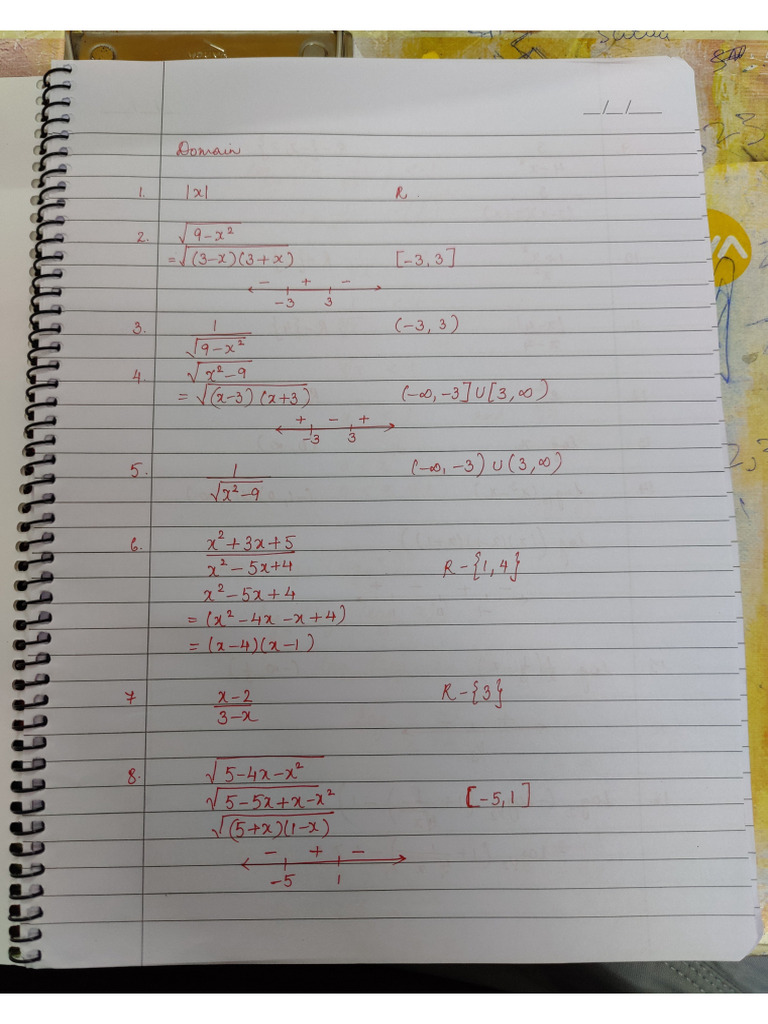 __/__/__
Domain
1. |x| R.
2. √(9-x²)
= √((3-x)(3+x)) [-3, 3]
- + -
-3 3
3. 1/√(9-x²) (-3, 3)
4. √(x²-9)
= √((x-3)(x+3)) (-∞, -3]∪[3, ∞)
+ - +
-3 3
5. 1/√(x²-9) (-∞, -3) ∪ (3, ∞)
6. (x²+3x+5)/(x²-5x+4) R-{1,4}
x²-5x+4
= (x²-4x-x+4)
= (x-4)(x-1)
7 (x-2)/(3-x) R-{3}
8. √(5-4x-x²)
√(5-5x+x-x²) [-5,1]
√((5+x)(1-x))
- + -
-5 1